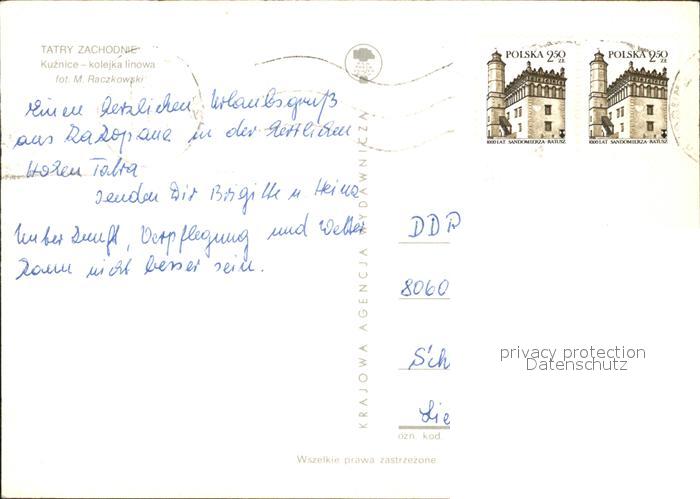 TATRY ZACHODNIE
Kuźnice – kolejka linowa
fot. M. Raczkowski
POLSKA 2.50 ZŁ
1000 LAT SANDOMIERZA - RATUSZ
POLSKA 2.50 ZŁ
1000 LAT SANDOMIERZA - RATUSZ
Einen herzlichen Urlaubsgruß
aus Zakopana in der herrlichen
Hohen Tatra
senden Dir Brigitte u Heinz
Unterkunft, Verpflegung und Wetter
kann nicht besser sein.
KRAJOWA AGENCJA WYDAWNICZA
DDR
8060
Sch
Lie
ozn. kod.
privacy protection
Datenschutz
Wszelkie prawa zastrzeżone